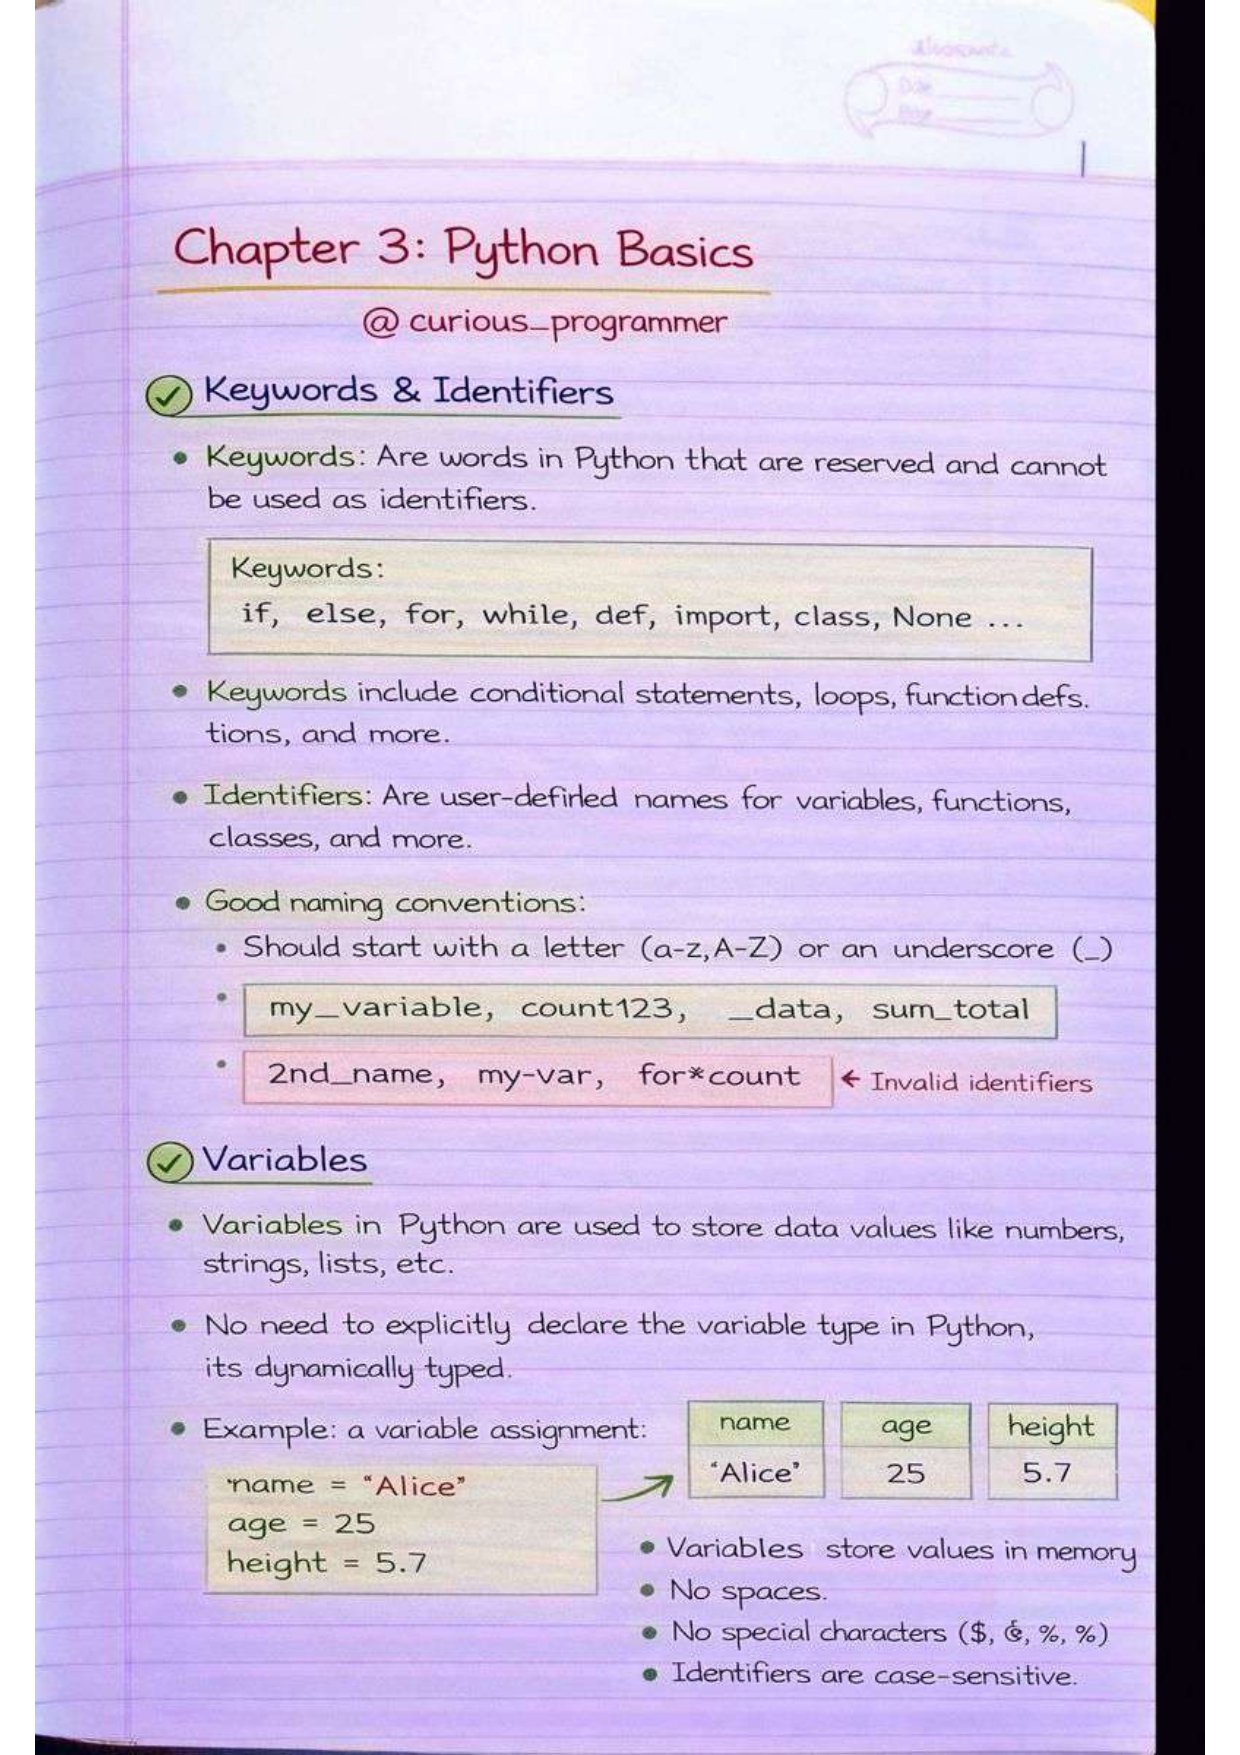 Chapter 3: Python Basics
@ curious_programmer
Keywords & Identifiers
• Keywords: Are words in Python that are reserved and cannot
be used as identifiers.
Keywords:
if, else, for, while, def, import, class, None ...
• Keywords include conditional statements, loops, function defs.
tions, and more.
• Identifiers: Are user-defirled names for variables, functions,
classes, and more.
• Good naming conventions:
• Should start with a letter (a-z, A-Z) or an underscore (_)
• my_variable, count123, _data, sum_total
• 2nd_name, my-var, for*count ← Invalid identifiers
Variables
• Variables in Python are used to store data values like numbers,
strings, lists, etc.
• No need to explicitly declare the variable type in Python,
its dynamically typed.
• Example: a variable assignment:
name = “Alice”
age = 25
height = 5.7
name age height
‘Alice’ 25 5.7
• Variables store values in memory
• No spaces.
• No special characters ($, &, %, %)
• Identifiers are case-sensitive.